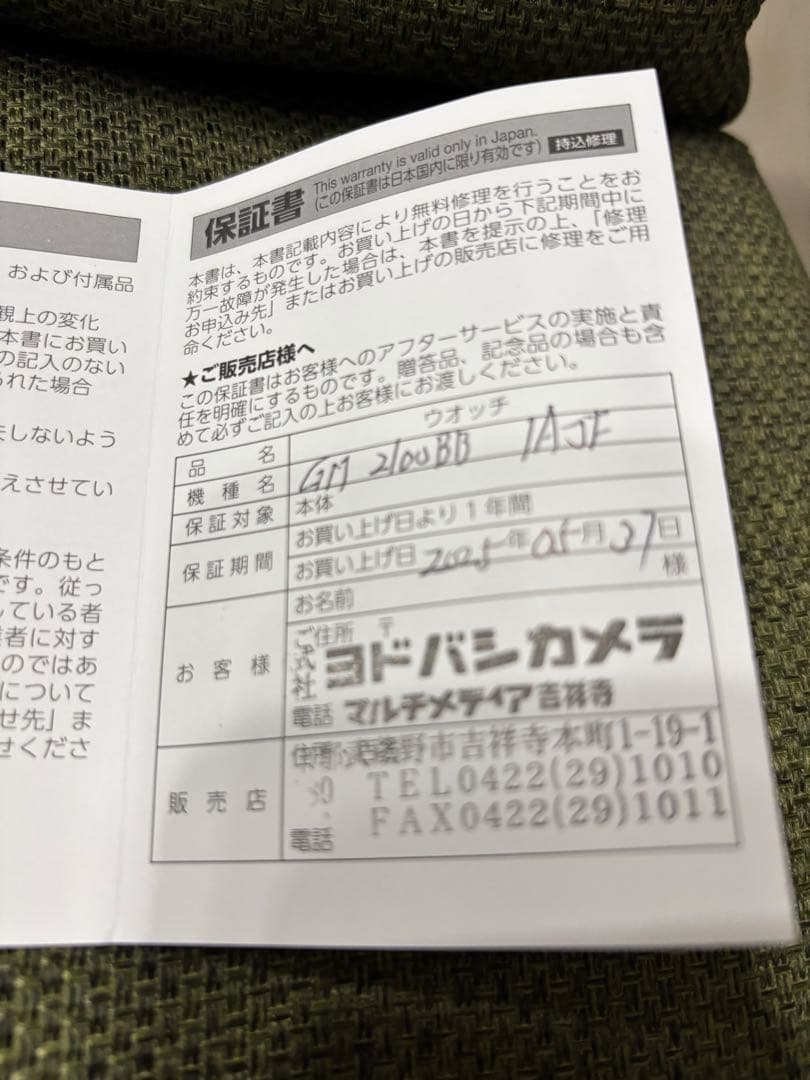 および付属品
観上の変化
本書にお買い
の記入のない
られた場合
失しないよう
えさせてい
条件のもと
です。従っ
している者
業者に対す
のではあ
について
せ先」ま
せくださ
保証書 This warranty is valid only in Japan.
(この保証書は日本国内に限り有効です) 持込修理
本書は、本書記載内容により無料修理を行うことをお
約束するものです。お買い上げの日から下記期間中に
万一故障が発生した場合は、本書を提示の上、「修理
お申込み先」またはお買い上げの販売店に修理をご用
命ください。
★ご販売店様へ
この保証書はお客様へのアフターサービスの実施と責
任を明確にするものです。贈答品、記念品の場合も含
めて必ずご記入の上お客様にお渡しください。
品名 ウオッチ
機種名 GM 2100BB 1AJF
保証対象 本体
保証期間 お買い上げ日より1年間
お買い上げ日 2025年05月27日
お客様 お名前 様
ご住所 〒
式社 ヨドバシカメラ
電話 マルチメディア吉祥寺
販売店 住所 武蔵野市吉祥寺本町1-19-1
TEL0422(29)1010
FAX0422(29)1011
電話